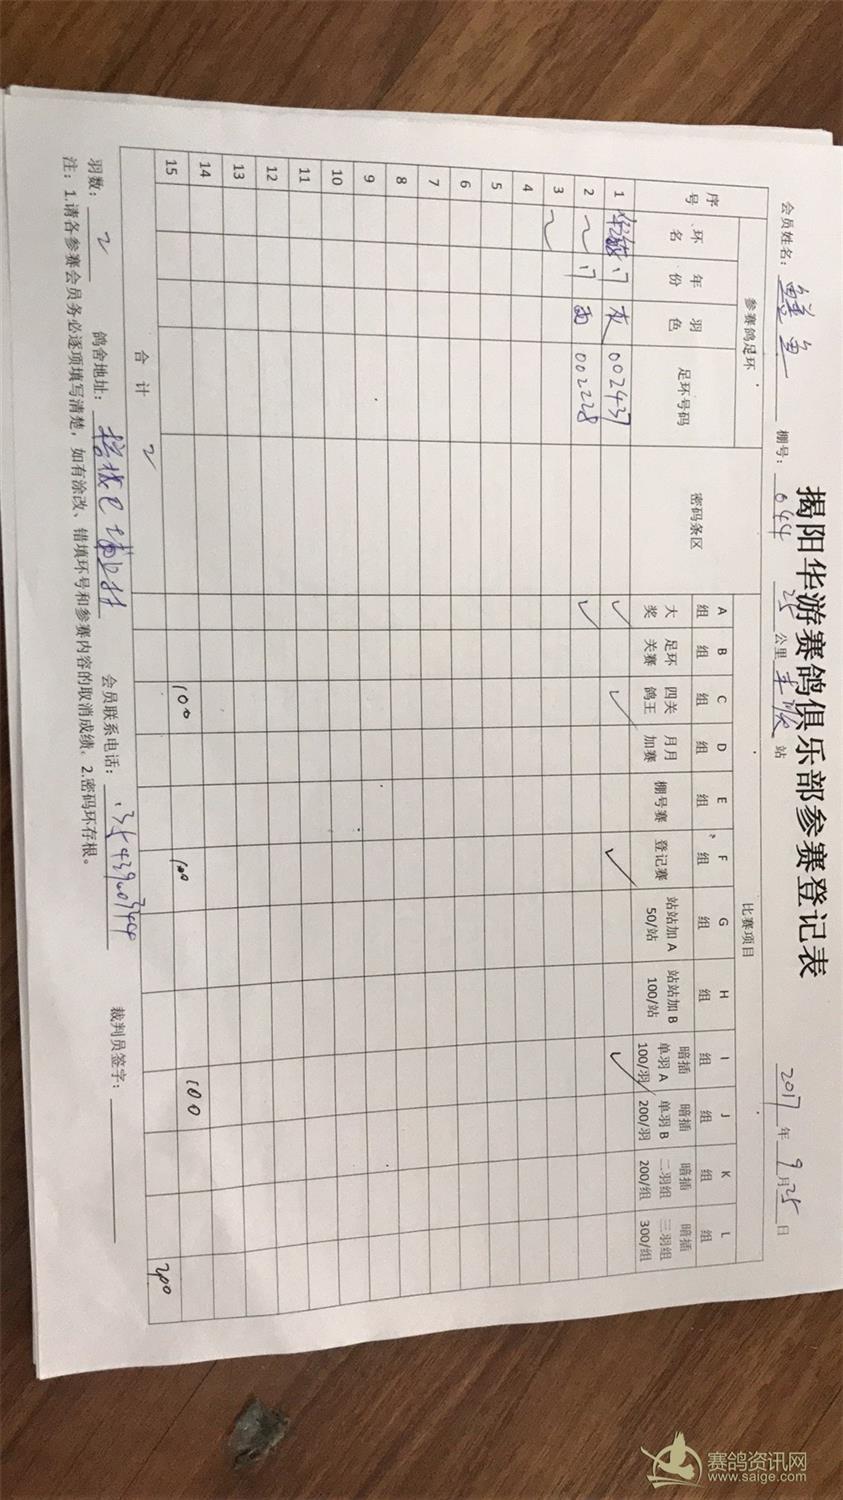 揭阳华游赛鸽俱乐部参赛登记表
会员姓名： 鳝鱼 棚号： 044 公里 站 2017 年 9 月 25 日
序号 参赛鸽足环 密码条区 比赛项目
环名 年份 羽色 足环号码 A组 B组 C组 D组 E组 F组 G组 H组 I组 J组 K组 L组
大奖 足环关赛 四关鸽王 月月加赛 棚号赛 登记赛 站站加A 50/站 站站加B 100/站 暗插单羽A 100/羽 暗插单羽B 200/羽 暗插二羽组 200/组 暗插三羽组 300/组
1 17 灰 002437 ✓ ✓ ✓ ✓
2 17 雨 002228 ✓
3
4
5
6
7
8
9
10
11
12
13
14 100
15 100 100 200
合计 2
羽数： 2 鸽舍地址： 会员联系电话： 裁判员签字：
注：1.请各参赛会员务必逐项填写清楚，如有涂改、错填环号和参赛内容的取消成绩。2.密码环存根。
赛鸽资讯网
www.saige.com